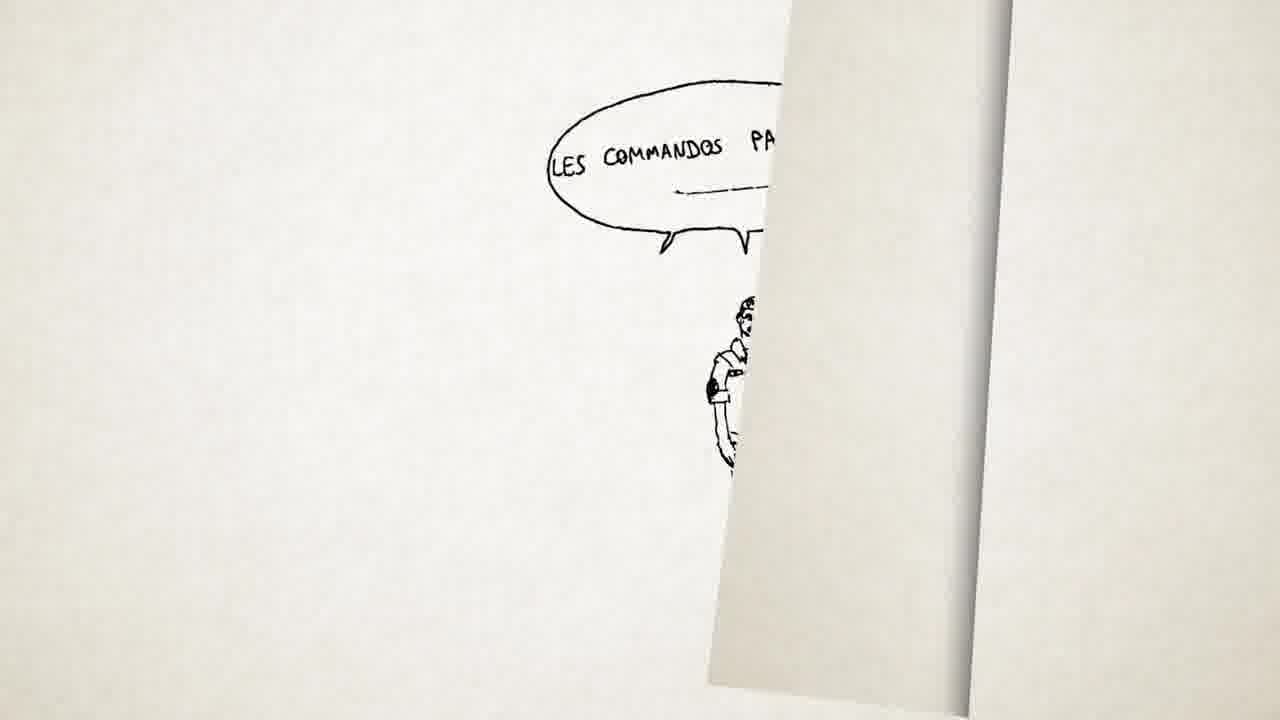 LES COMMANDOS PA